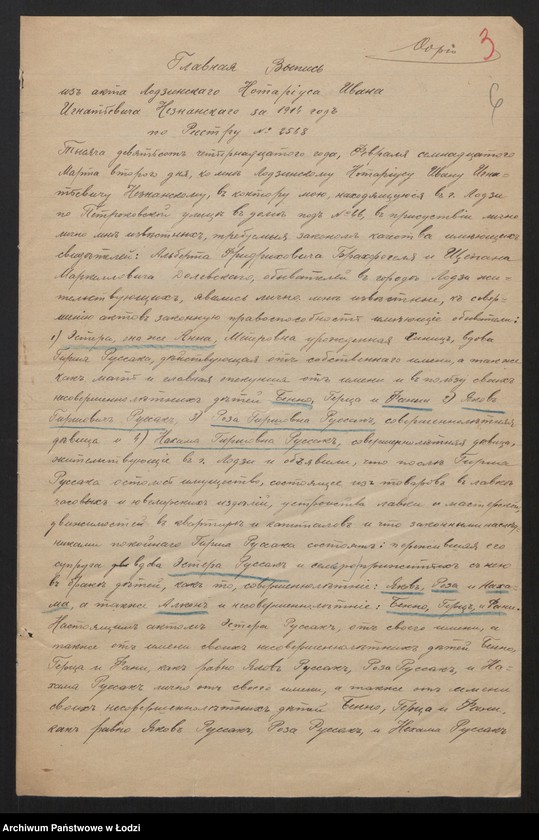 Копія 3
6
Главная Выпись
изъ акта Лодзинскаго Нотаріуса Ивана
Игнатьевича Незнанскаго за 1914 годъ
по Реестру №
Тысяча девятьсотъ четырнадцатаго года, Февраля семнадцатаго
Марта второго дня, ко мнѣ Лодзинскому Нотаріусу Ивану Игна-
тьевичу Незнанскому, въ контору мою, находящуюся въ г. Лодзи
по Петроковской улицѣ въ домѣ подъ № 66, въ присутствіи лично
мнѣ извѣстныхъ, требуемыя закономъ качества имѣющихъ
свидѣтелей: Альберта Фридриховича и
Долевскаго, обывателей въ городѣ Лодзи жи-
тельствующихъ, явились лично мнѣ извѣстные, къ совер-
шенію актовъ законную правоспособность имѣющіе обыватели:
1) Эстера, она же Анна, урожденная вдова
Гирша Руссака, дѣйствующая отъ собственнаго имени, а также
какъ мать и главная опекунша отъ имени и въ пользу своихъ
несовершеннолѣтнихъ дѣтей Бенно, Герца и Фани 2) Яковъ
Гиршовичъ Руссакъ, 3) Роза Гиршовна Руссакъ, совершеннолѣтняя
дѣвица и 4) Нахама Гиршовна Руссакъ, совершеннолѣтняя дѣвица,
жительствующіе въ г. Лодзи и объявили, что послѣ Гирша
Руссака осталось имущество, состоящее изъ товаровъ въ лавкѣ
часовыхъ и ювелирскихъ издѣлій, устройства лавки и мастерской,
движимостей въ квартирѣ и капиталовъ и что законными наслѣд-
никами покойнаго Гирша Руссака состоятъ: пережившая его
супруга вдова Эстера Руссакъ и прижитыхъ съ нею
въ бракѣ дѣтей, какъ то, совершеннолѣтніе: Яковъ, Роза и Наха-
ма, а также и несовершеннолѣтніе: Бенно, Герцъ и Фани.
Настоящимъ актомъ Эстера Руссакъ, отъ своего имени, и
также отъ имени своихъ несовершеннолѣтнихъ дѣтей Бенно,
Герца и Фани, какъ равно Яковъ Руссакъ, Роза Руссакъ, и На-
хама Руссакъ лично отъ своего имени, а также отъ имени
своихъ несовершеннолѣтнихъ дѣтей Бенно, Герца и Фани,
какъ равно Яковъ Руссакъ, Роза Руссакъ, и Нехама Руссакъ
Archiwum Państwowe w Łodzi